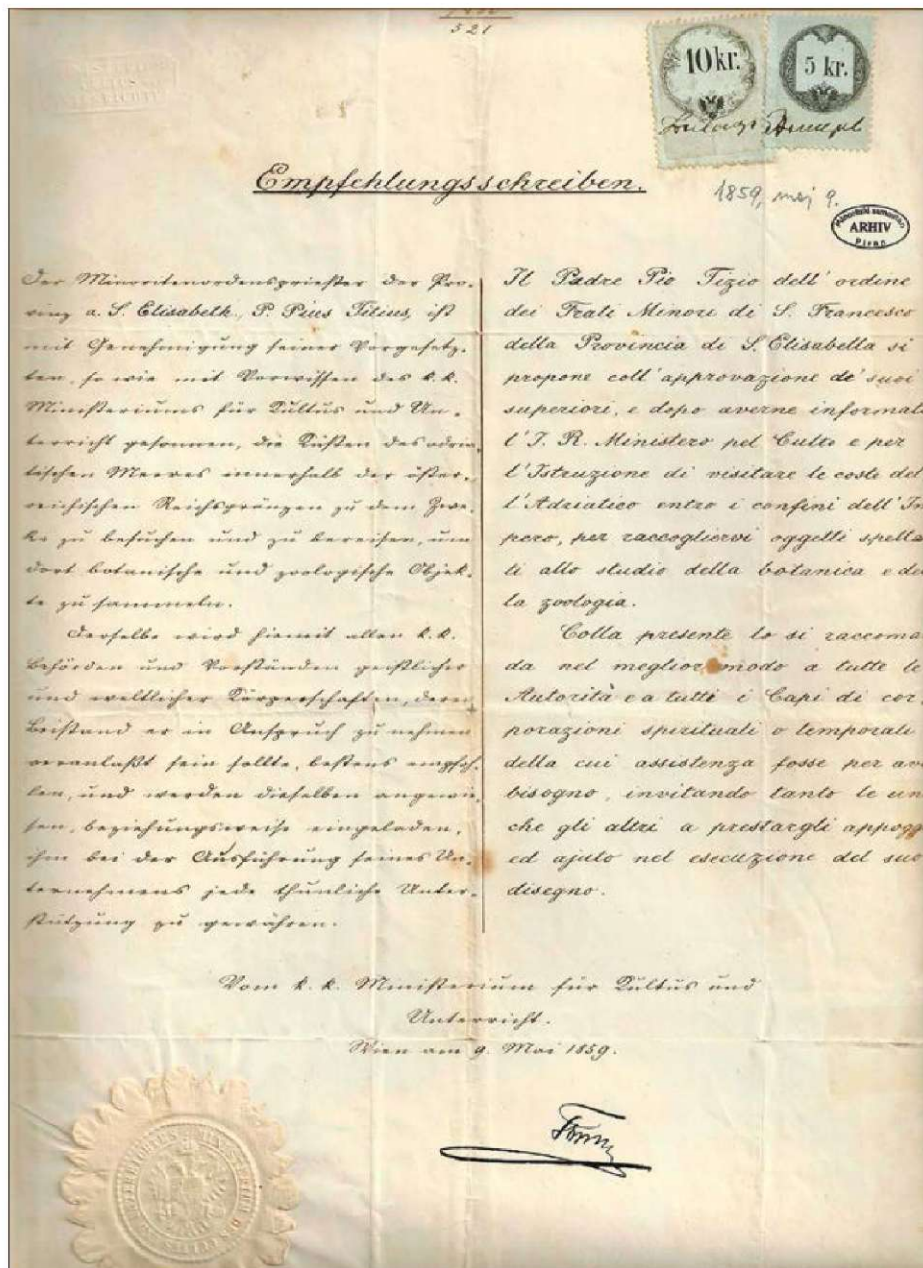 521
10 kr.
5 kr.
Empfehlungsschreiben.
1859, maj 9.
ARHIV
Piran
Der Minoritenordenspriester der Pro-
vinz a. S. Elisabeth, P. Pius Titius, ist
mit Genehmigung seiner Vorgesetz-
ten, so wie mit Vorwissen des k. k.
Ministeriums für Kultus und Un-
terricht gesonnen, die Küsten des adria-
tischen Meeres innerhalb der öster-
reichischen Reichsgränzen zu dem Zwe-
ke zu besuchen und zu bereisen, um
dort botanische und zoologische Objek-
te zu sammeln.
Derselbe wird hiemit allen k. k.
Behörden und Vorständen geistlicher
und weltlicher Körperschaften, deren
Beistand er in Anspruch zu nehmen
veranlaßt sein sollte, bestens empfoh-
len, und werden dieselben angewie-
sen, beziehungsweise eingeladen,
ihm bei der Ausführung seines Un-
ternehmens jede thunliche Unter-
stützung zu gewähren.
Il Padre Pio Tizio dell' ordine
dei Frati Minori di S. Francesco
della Provincia di S. Elisabella si
propone coll' approvazione de' suoi
superiori, e dopo averne informat
l' I. R. Ministero pel Culto e per
l' Istruzione di visitare le coste del
l' Adriatico entro i confini dell' Im
pero, per raccogliervi oggetti spetta
ti allo studio della botanica e del
la zoologia.
Colla presente lo si raccoma
da nel meglior modo a tutte le
Autorità e a tutti i Capi di cor
porazioni spirituali o temporali
della cui assistenza fosse per ave
bisogno, invitando tanto le un
che gli altri a prestargli appogg
ed ajuto nel esecuzione del suo
disegno.
Vom k. k. Ministerium für Kultus und
Unterricht.
Wien am 9. Mai 1859.